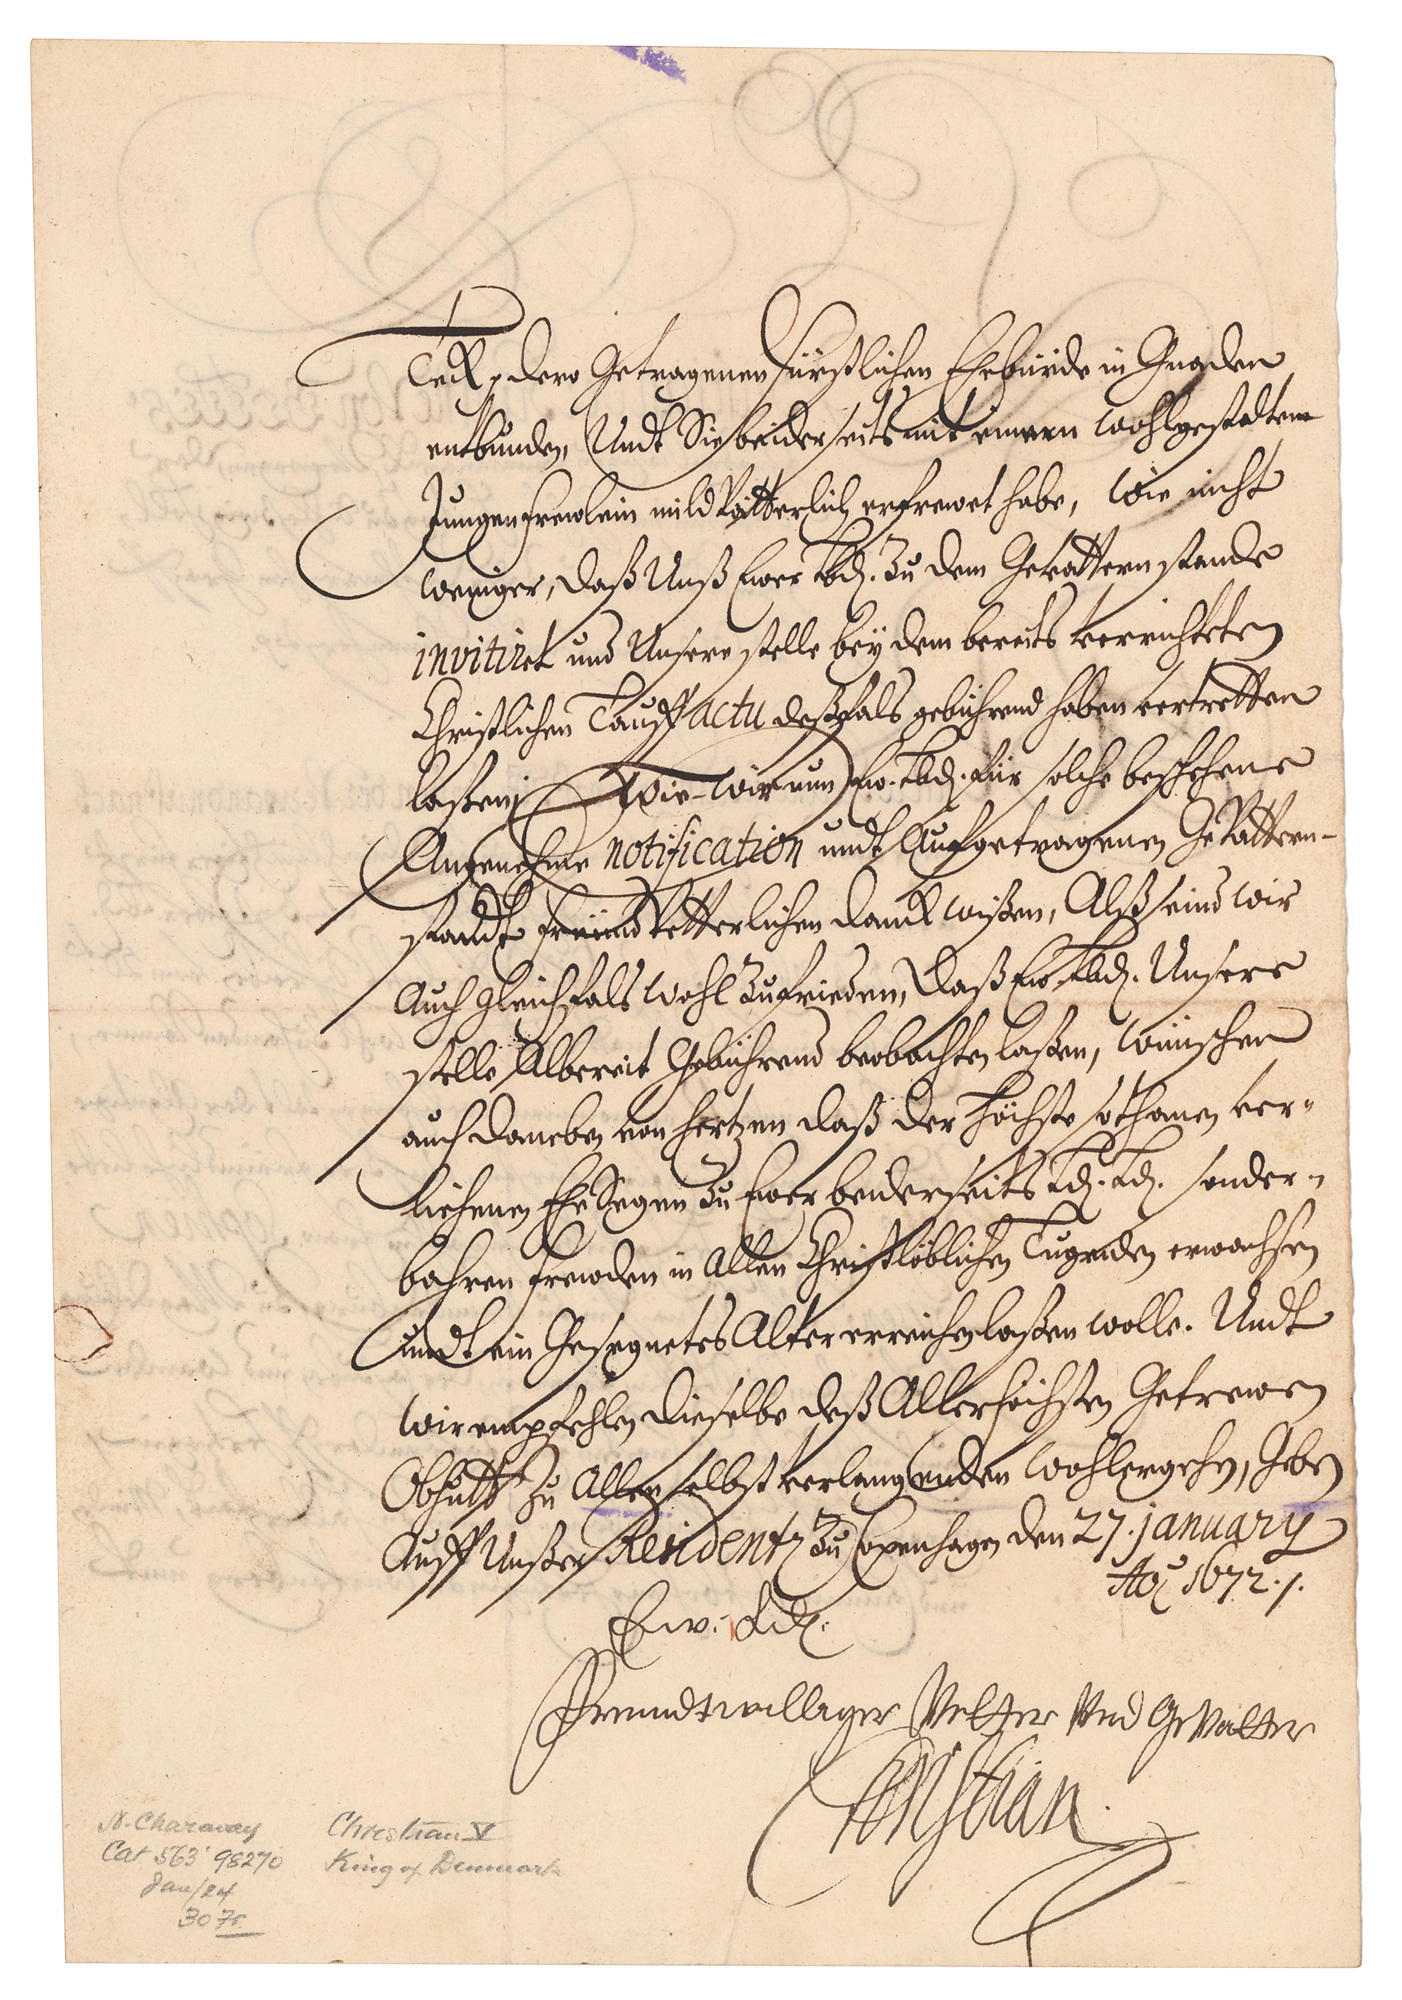 dero Getragenen fürstlichen Ehebürde in Gnaden
entbunden, Undt Sie beiderseits mit einem wohlgestalten
Jungen frewlein mildVätterlich erfrewet habe, Wie nicht
weniger, daß Unß Ewer Lbd. zu dem Gevatternstande
invitiret und Unsere stelle bey dem bereits verrichteten
Christlichen Tauff actu deßfals gebührend haben vertretten
laßen; Wie wir nun Ew. Lbd. für solche beschehene
Angenehme notification undt Aufgetragenen GeVattern-
standt freündvetterlichen danck wißen, Alß seind wir
Auch gleichfals wohl zufrieden, daß Ew. Lbd. Unsere
stelle Albereit Gebührend beobachten laßen, wünschen
auch daneben von hertzen daß der Höchste sothanen ver-
liehenen EheSegen zu Ewer beiderseits Ld. Ld. sonder-
bahren frewden in Allen Christlöblichen Tugenden erwachsen
undt ein Gesegnetes Alter erreichen laßen wolle. Undt
wir empfehlen dieselbe deß Allerhöchsten Getrewen
Obhutt zu Allen selbst verlangenden wohlergehen, Geben
Auff Unßer Residentz zu Copenhagen den 27. january
Ao 1672.
Ew. Ld.
Freundtwilliger Vetter Und GeVatter
Christian
N. Charavay
Cat 563 98270
Jan/24
30 Fr.
Christian V
King of Denmark